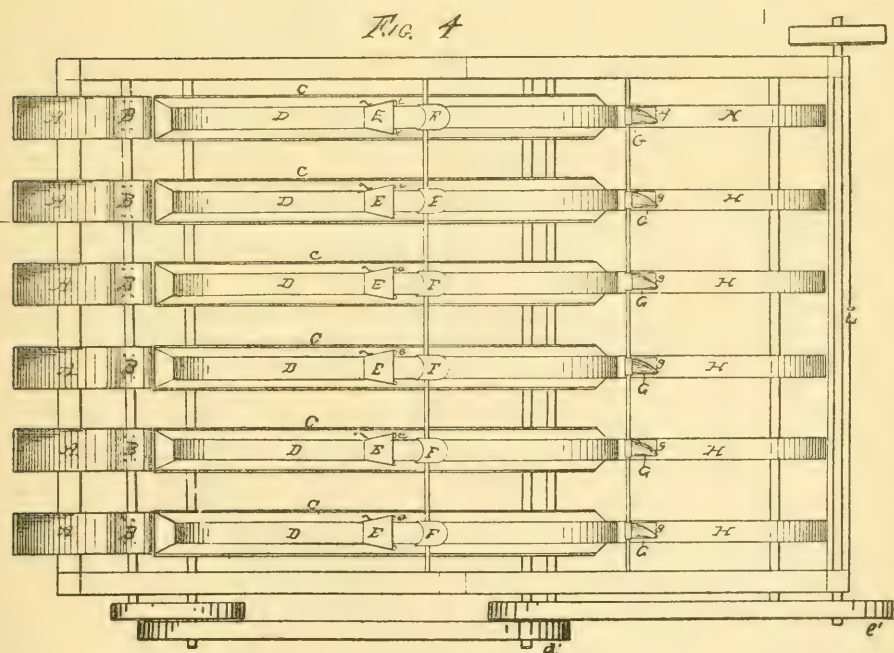 FIG. 4
C
A B D E e F G g H
C
A B D E e F G g H
C
A B D E e F G g H
C
A B D E e F G g H
C
A B D E e F G g H
C
A B D E e F G g H
d' e'